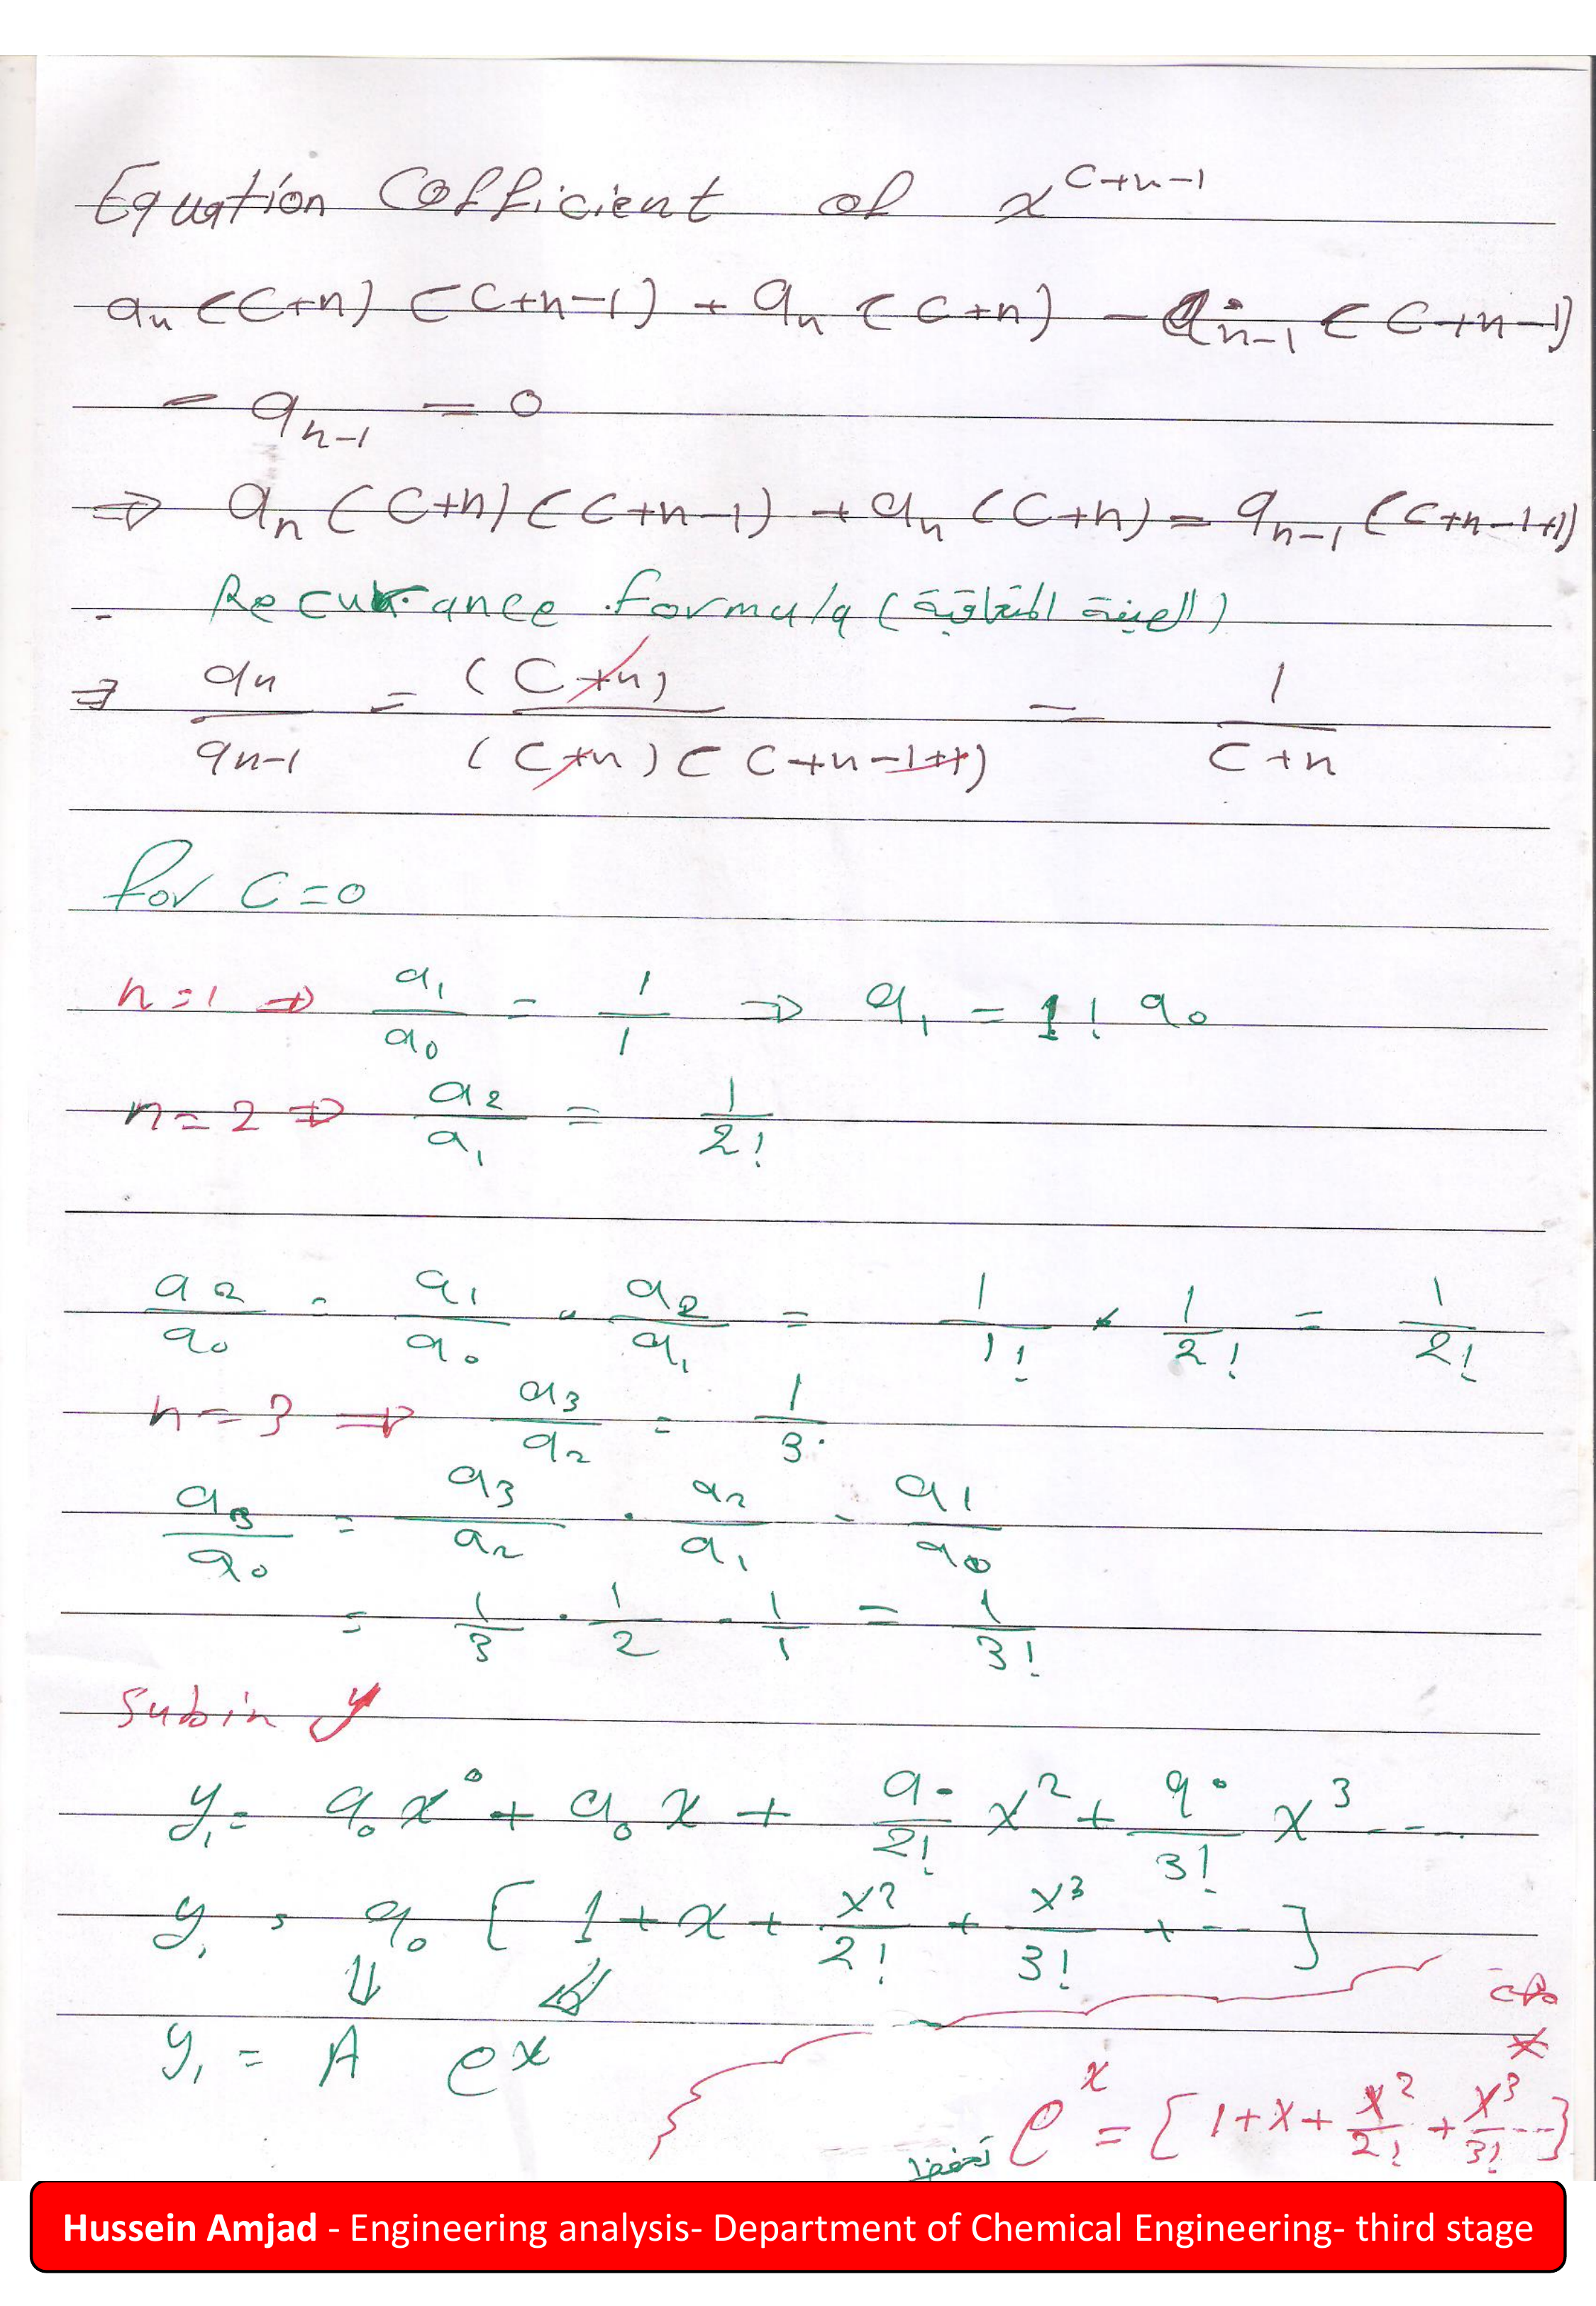 Equation Cofficient of x^{c+n-1}
a_n (C+n) (C+n-1) + a_n (C+n) - a_{n-1} (C+n-1)
- a_{n-1} = 0
⇒ a_n (C+n) (C+n-1) + a_n (C+n) = a_{n-1} (C+n-1+1)
Recurrance formula (الصيغة المتعاقبة)
⇒ a_n / a_{n-1} = (C+n) / (C+n) (C+n-1+1) = 1 / C+n
for C=0
n=1 ⇒ a_1 / a_0 = 1 / 1 ⇒ a_1 = 1! a_0
n=2 ⇒ a_2 / a_1 = 1 / 2!
a_2 / a_0 = a_1 / a_0 . a_2 / a_1 = 1 / 1! * 1 / 2! = 1 / 2!
n=3 ⇒ a_3 / a_2 = 1 / 3
a_3 / a_0 = a_3 / a_2 . a_2 / a_1 . a_1 / a_0
= 1/3 . 1/2 . 1/1 = 1 / 3!
sub in y
y_1 = a_0 x^0 + a_0 x + a_0 / 2! x^2 + a_0 / 3! x^3 ----
y_1 = a_0 [ 1 + x + x^2 / 2! + x^3 / 3! + -- ]
y_1 = A e^x
e^x = [1+x+ x^2 / 2! + x^3 / 3! ---]
تحفظ
Hussein Amjad - Engineering analysis- Department of Chemical Engineering- third stage